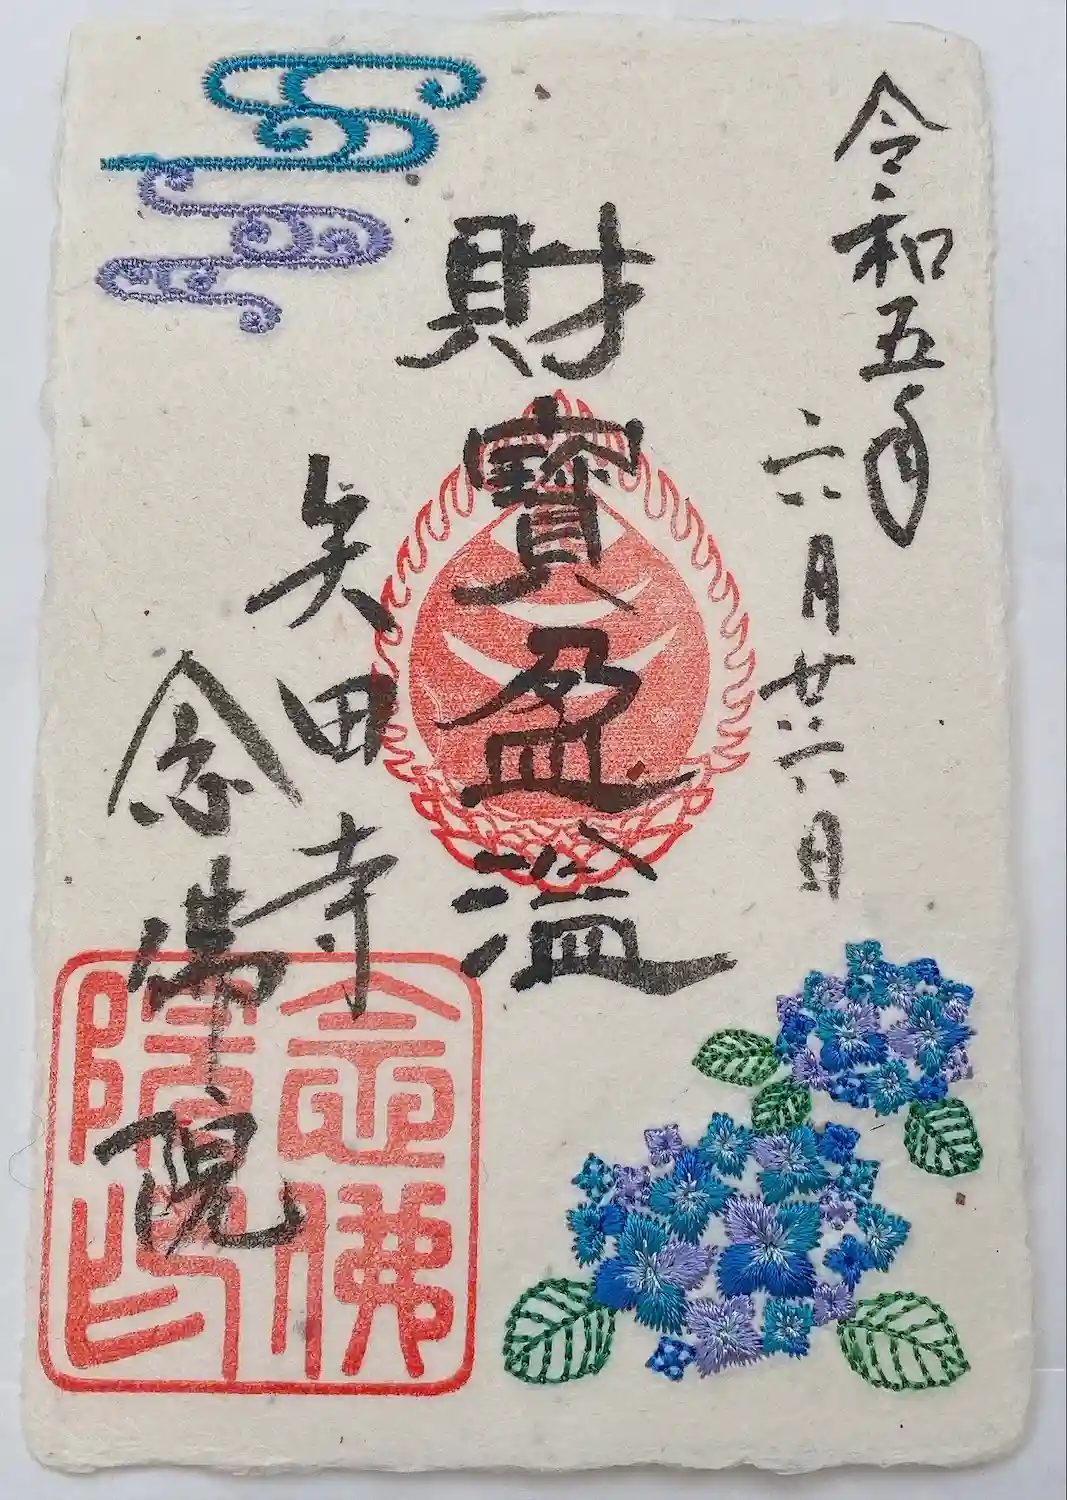 令和五年
六月廿六日
財寶盈溢
矢田寺
念佛院
念佛院印